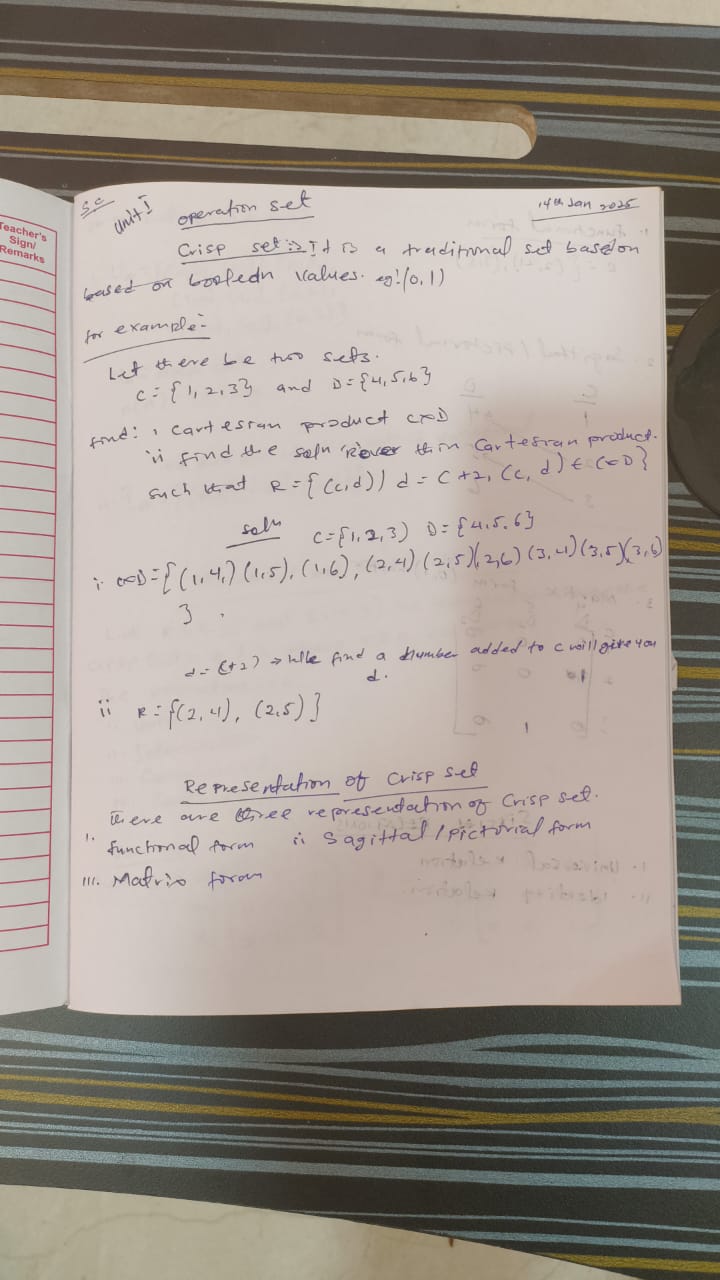 Teacher's
Sign/
Remarks
S.C
Unit I
operation set
14th Jan 2025
Crisp set:- It is a traditional set based on
based on boolean values. eg:(0,1)
for example:-
Let there be two sets.
C = {1, 2, 3} and D = {4, 5, 6}
find: i cartesian product C×D
ii find the soln R over thin Cartesian product.
such that R = {(c,d) | d = C +2, (c, d) ∈ C×D}
soln C = {1, 2, 3) D = {4, 5, 6}
i. C×D = { (1,4,) (1,5), (1,6), (2,4) (2,5)(2,6) (3,4) (3,5)(3,6)
}
d = C+2) → We find a number added to c will give you
d.
ii R = {(2,4), (2,5)}
Representation of Crisp set
there are three representation of Crisp set.
i. functional form ii Sagittal / pictorial form
iii. Matrix form